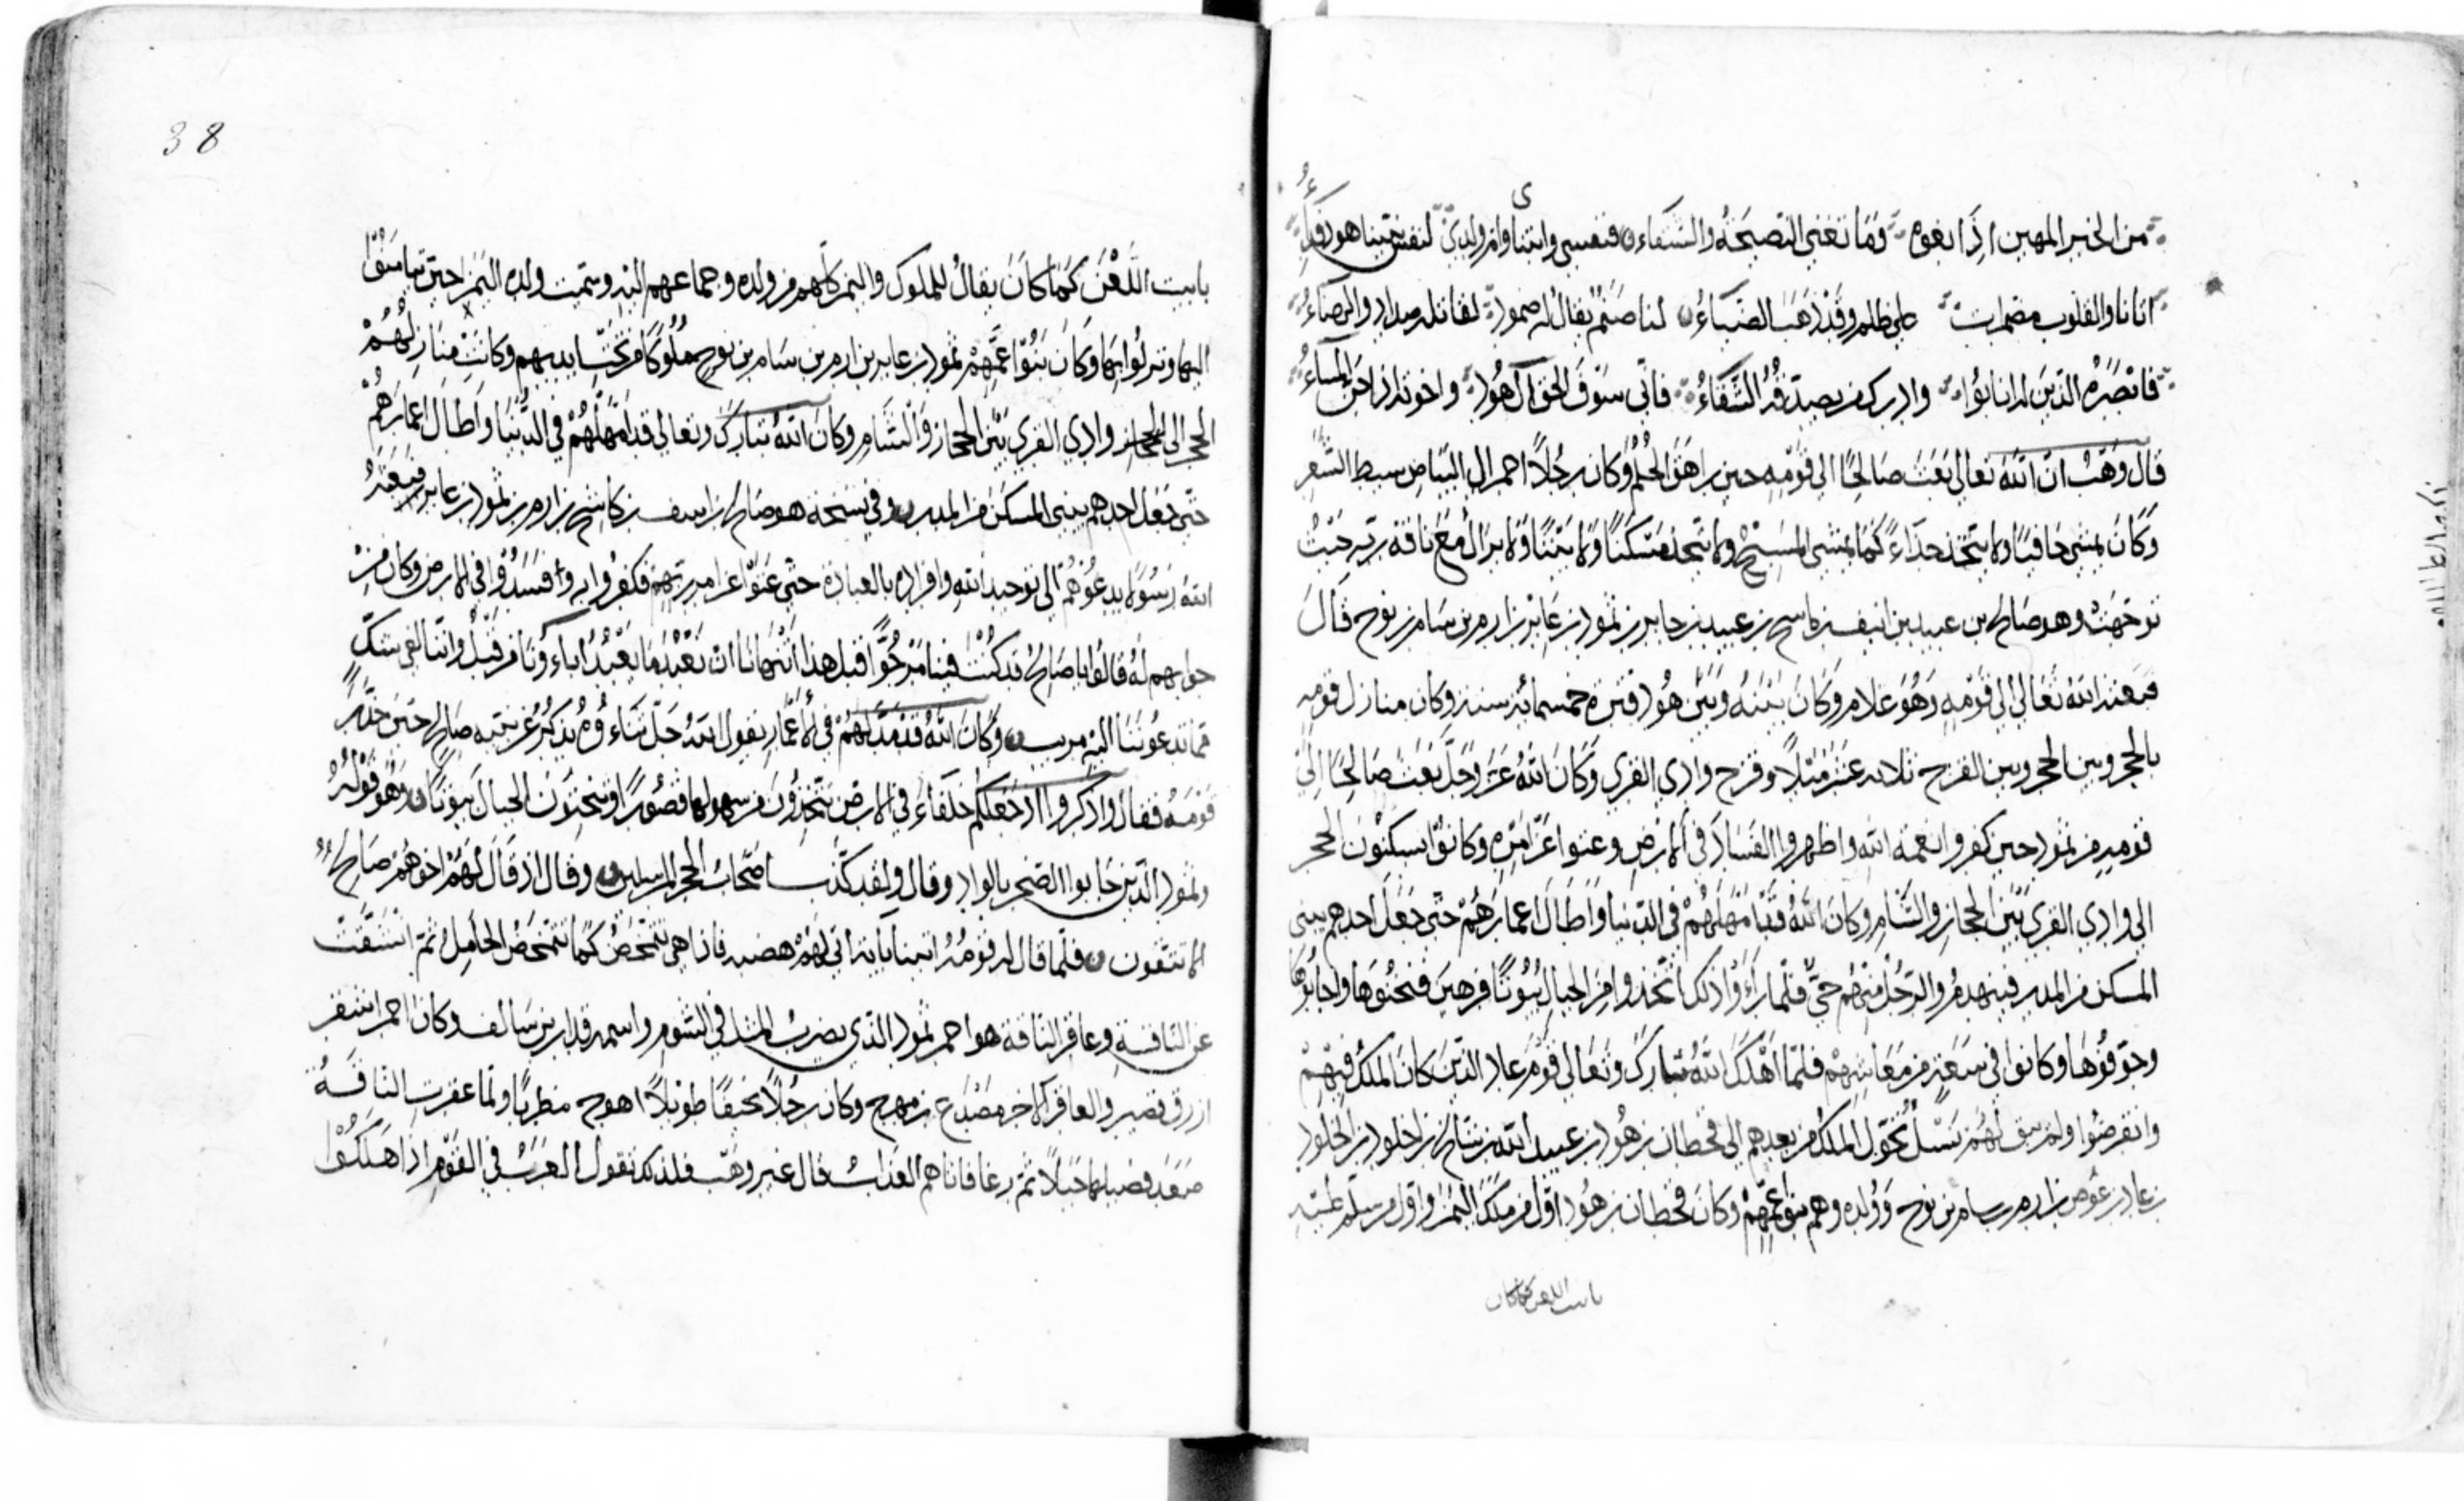 من الخير المهين اذا بغوه فما تغني النصيحة والشفاء فنفسي وابنتاي وام ولدي لنفس نبينا هود فداء
اتانا والقلوب مصمدات على ظلم وقد ذهب الضياء لنا صنم يقال له صمود يقابله صداء والهباء
فابصره الذين له انابوا وادرك من يصدقه الشفاء فاني سوف الحق آل هود واخوته اذا جن المساء
قال وهب ان الله تعالى بعث صالحا الى قومه حين راهق الحلم وكان رجلا احمر الى البياض سبط الشعر
وكان يمشي حافيا ولا يتخذ حذاء كما يمشي المسيح ولا يتخذ مسكنا ولا بيتا ولا يزال مع ناقة ربه حيث
توجهت وهو صالح بن عبيد بن انيف بن ماسح بن عبيد بن جابر بن ثمود بن عابر بن ارم بن سام بن نوح قال
فبعثه الله تعالى الى قومه وهو غلام وكان بينه وبين هود فترة خمسمائة سنة وكان منازل قومه
بالحجر وبين الحجر وبين القرح ثلاثة عشر ميلا وقرح وادي القرى وكان الله عز وجل بعث صالحا الى
قومه من ثمود حين كفروا نعمة الله واظهروا الفساد في الارض وعتوا عن امره وكانوا يسكنون الحجر
الى وادي القرى بين الحجاز والشام وكان الله قد امهلهم في الدنيا واطال اعمارهم حتى جعل احدهم يبني
المسكن من المدر فينهدم والرجل منهم حي فلما راوا ذلك اتخذوا من الجبال بيوتا فرهين فنحتوها وجابوها
وجوفوها وكانوا في سعة من معاشهم فلما اهلك الله تبارك وتعالى قوم عاد الذين كان الملك فيهم
وانقرضوا ولم يبق لهم نسل تحول الملك من بعدهم الى قحطان بن هود بن عبيد الله بن شالخ بن اخلود بن الخلود
بن عاد بن عوص بن ارم بن سام بن نوح وولده وهم بنو عمهم وكان قحطان بن هود اول من ملك اليمن واول من سلم عليه
بابيت اللعن كما كان
38
بابيت اللعن كما كان يقال للملوك واليمن كلهم من ولده وجماعهم اليه وسميت ولده اليمن حين تيامنوا
اليها ونزلوا بها وكان بنو عمهم ثمود بن عابر بن ارم بن سام بن نوح ملوكا من تحت ايديهم وكانت منازلهم
الحجر الى وادي القرى بين الحجاز والشام وكان الله تبارك وتعالى قد امهلهم في الدنيا واطال اعمارهم
حتى جعل احدهم يبني المسكن من المدر وفي نسخة هو صالح بن اسف بن كاشح بن ارم بن ثمود بن عابر فبعثه
الله رسولا يدعوهم الى توحيد الله وافراده بالعبادة حتى عتوا عن امر ربهم فكفروا به وافسدوا في الارض وكان من
جوابهم له قالوا يا صالح قد كنت فينا مرجوا قبل هذا اتنهانا ان نعبد ما يعبد اباءونا من قبل واننا لفي شك
مما تدعوننا اليه مريب وكان الله قد مد لهم في الاعمار يقول الله جل ثناءوه يذكر عن نبيه صالح حين حذر
قومه فقال واذكروا اذ جعلكم خلفاء في الارض تتخذون من سهولها قصورا وتنحتون الجبال بيوتا وهو قوله
وثمود الذين جابوا الصخر بالواد وقال ولقد كذب اصحاب الحجر المرسلين وقال اذ قال لهم اخوهم صالح
الا تتقون فلما قال له قومه ائتنا باية اتى لهم هضبة فاذا هي تتمخض كما تتمخض الحامل ثم انشقت
عن الناقة وعاقر الناقة هو احمر ثمود الذي يضرب المثل في الشوم واسمه قدار بن سالف وكان احمر اشقر
ازرق قصير والعاقر الاخر مصدع بن مهرج وكان رجلا نحيفا طويلا اهوج مضطربا ولما عقرت الناقة
صعد فصيلها جبلا ثم رغا فاتاهم العذاب قال غير وهب فلذلك تقول العرب في القوم اذا هلكوا